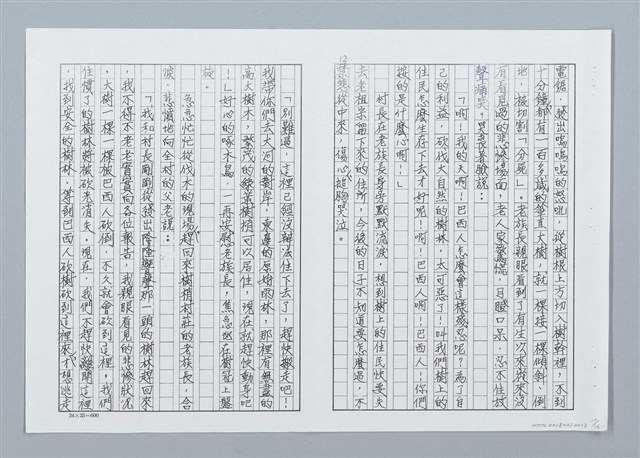 電鋸，發出嗚嗚嗚的怒吼，從樹根上方切入樹幹裡，不到
十分鐘，都有一百多歲的筆直大樹，就一棵接一棵傾斜、倒
地，被切割「分屍」。老族長親眼看到了有生以來從來沒
有看見過的悲慘場面，老人家驚慌，目瞪口呆，忍不住放
聲痛哭，哭喪著臉說：
「啊！我的天啊！巴西人怎麼會這樣殘忍呢？為了自
己的利益，砍伐大自然的樹林，太可惡了！叫我們樹上的
住民怎麼生存下去才好呢！啊！巴西人啊！巴西人！你們
按的是什麼心啊！」
村長在老族長身旁默默流淚，想到樹上的住民快要失
去老祖宗留下來的住所，今後的日子不知道要怎麼過，不
悲從中來，傷心搥胸哭泣。
「別難過，這裡已經沒辦法住下去了，趕快搬走吧！
我帶你們去大河的對岸，東邊的原始雨林，那裡有無盡的
高大樹木，繁茂的綠葉樹梢可以居住，現在就趕快動身吧
！」好心的啄木鳥，一再安慰老族長，焦急地在樹冠上盤
旋。
急急忙忙從伐木的現場，趕回來樹梢村莊的老族長，含
淚，悲憤地向全村的父老說：
「我和村長剛剛從發出隆隆聲那一頭的樹林趕回來
，我不得不老老實實向各位報告，我親眼看見的悲慘狀況
，大樹一棵一棵被巴西人砍倒，不久就會砍到這裡，我們
住慣了的樹林將被砍光消失。現在，我們不趕快離開這裡
，找到安全的樹林，等到巴西人砍樹砍到這裡來，才想逃走
24×25＝600